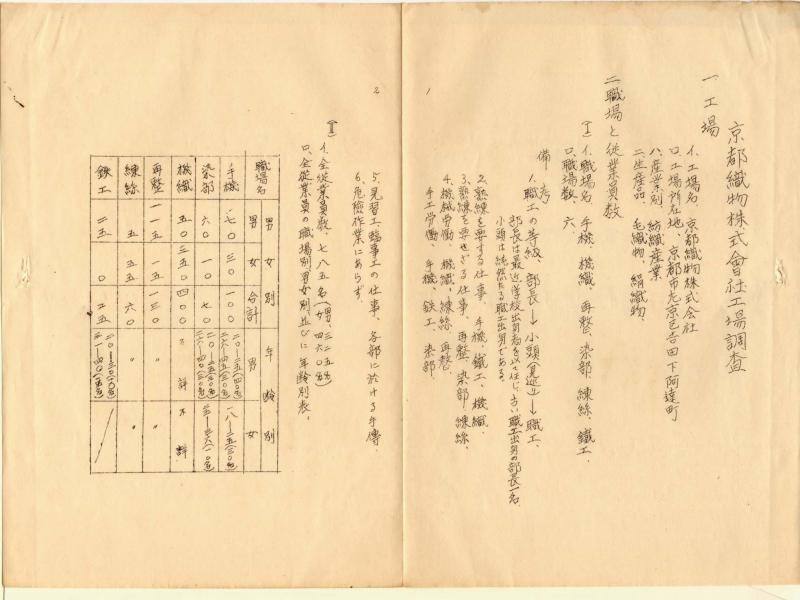 京都織物株式會社工場調査
一、工場
イ.工場名、京都織物株式会社
ロ.工場所在地、京都市左京区吉田下阿達町
ハ.産業別 紡織産業
ニ.生産品、毛織物、絹織物、
二、職場と従業員数
(Ⅰ)イ.職場名、手機、機織、再整、染部、練絲、鐵工、
ロ.職場数、六、
備考
1.職工の等級、部長→小頭(見廻り)→職工、
部長は最近学校出身者を以て任じ、古い職工出身の部長一名、
小頭は純然たる職工出身である。
2.熟練を要する仕事、手機、鐵工、機織、
3.熟練を要せざる仕事、再整、染部、練絲、
4.機械労働、機織、練絲、再整、
手工労働、手機、鉄工、染部、
1
2
5.見習工、臨時工の仕事、各部に於ける手傳
6.危險作業にあらず、
(Ⅱ)イ.全従業員数、七八五名(男、三二五名 女、四六〇名)
ロ.全従業員の職場別男女別並びに年齢別表、
職場名 男女別 年齢別
男 女 合計 男 女
手機 七〇 三〇 一〇〇
染部 六〇 一〇 七〇
機織 五〇 三五〇 四〇〇 不詳 不詳
再整 一一五 一五 一三〇 〃 〃
練絲 五 五五 六〇 〃 〃
鉄工 二五 〇 二五